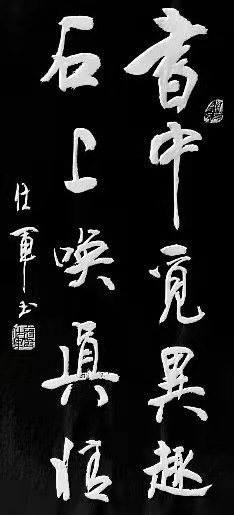 書中覓異趣
石上喚真情
仕軍书